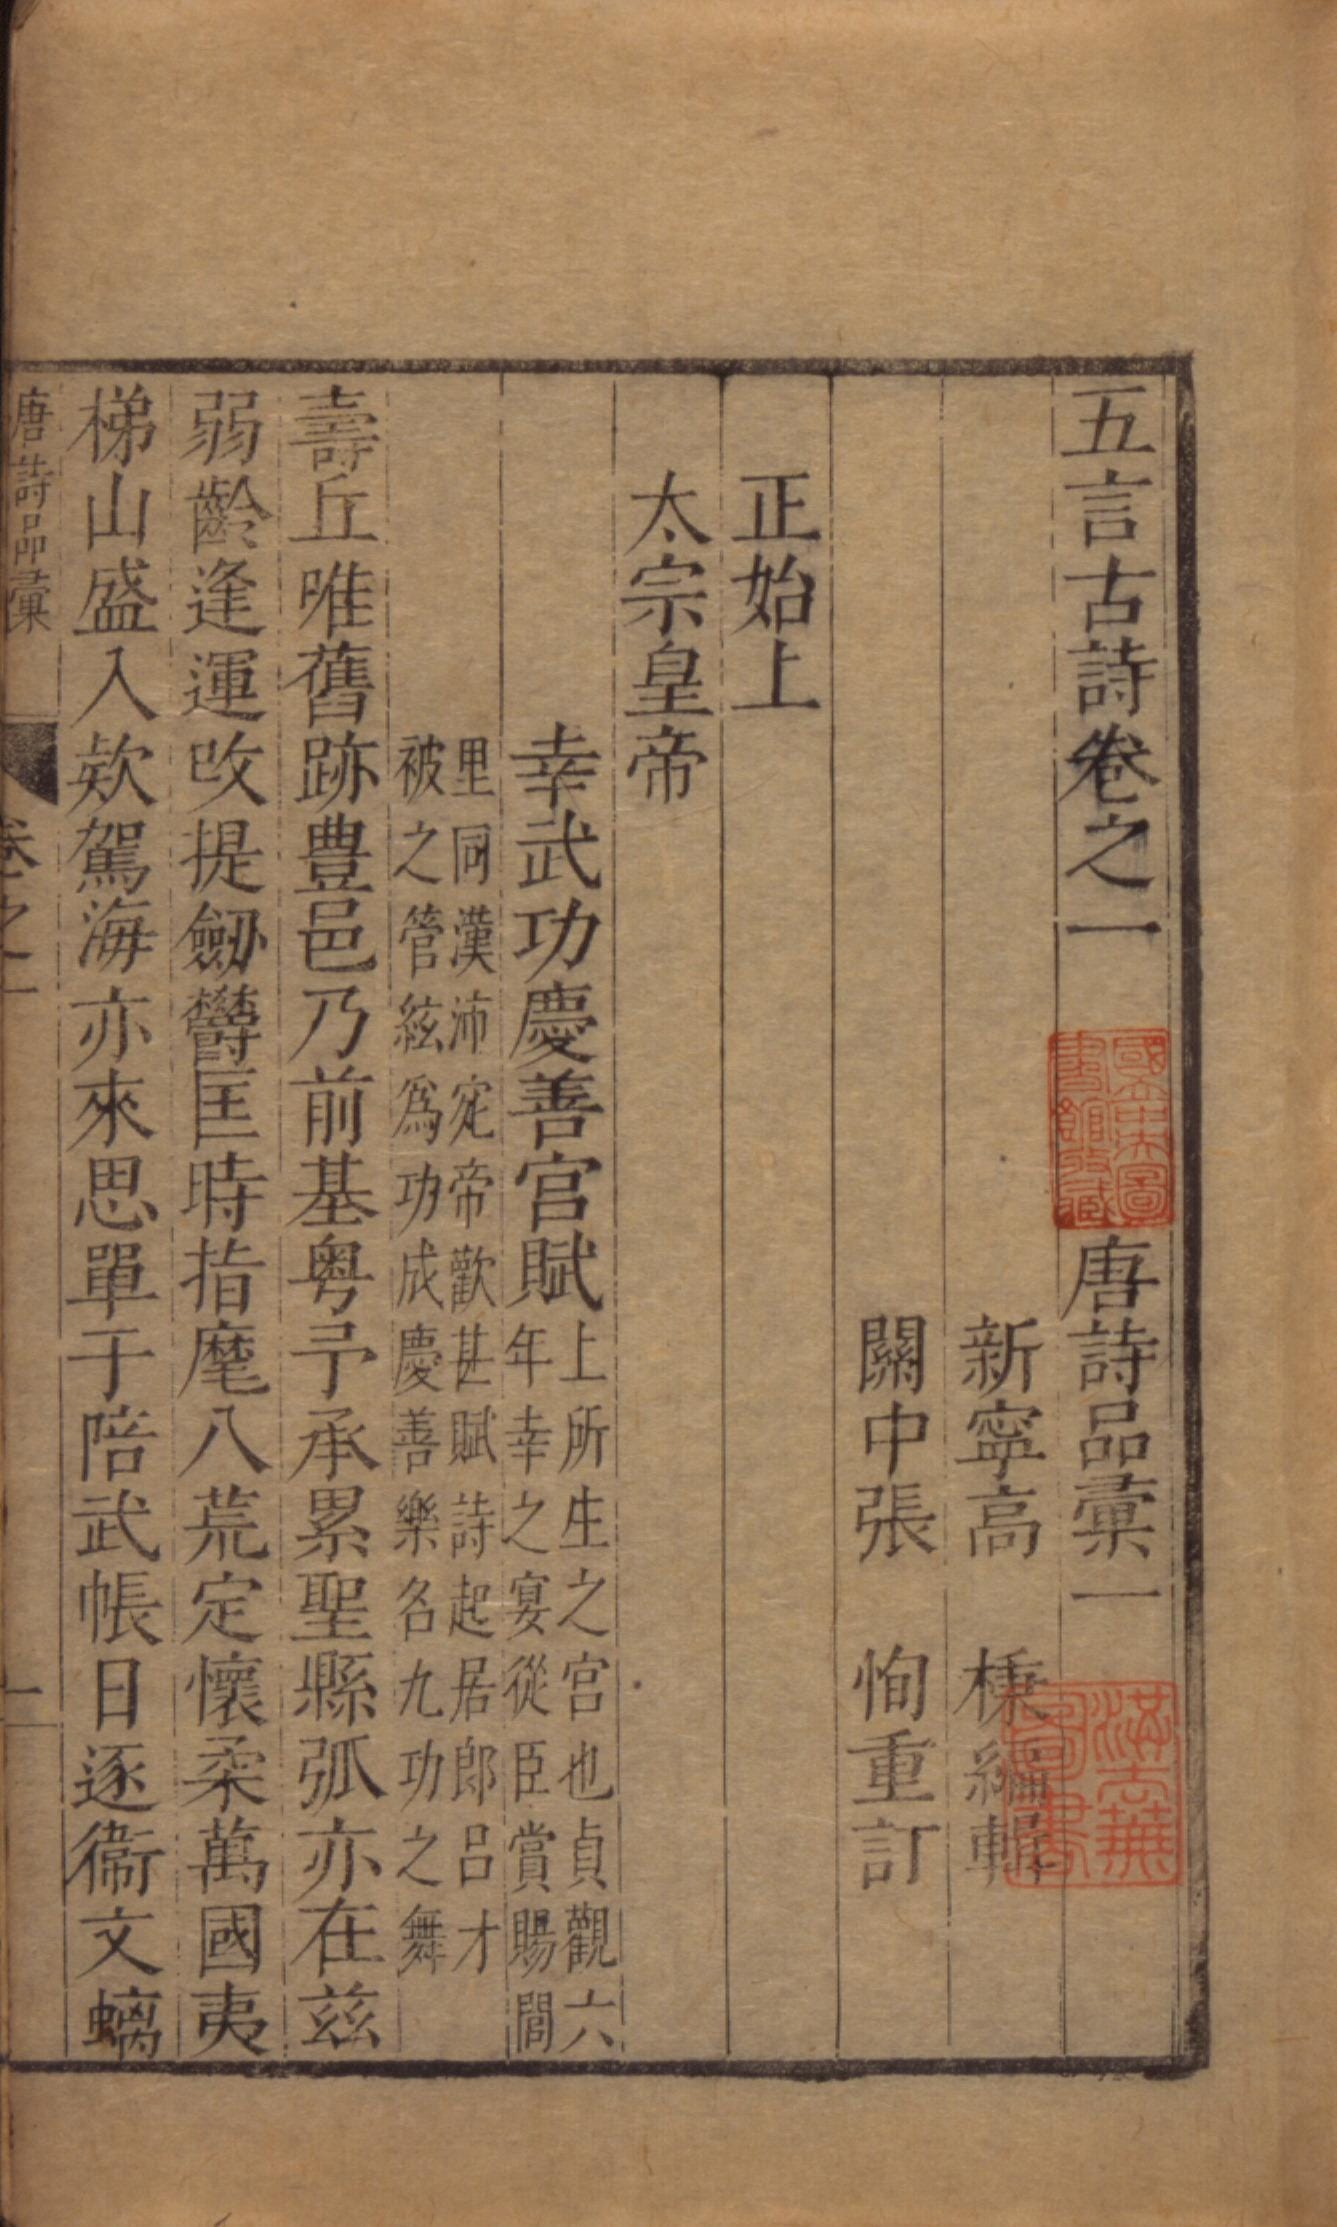 五言古詩卷之一　唐詩品彙一
國立中央圖
書館收藏
新寧高　棅編輯
關中張　恂重訂
正始上
太宗皇帝
幸武功慶善宮賦
上所生之宮也貞觀六
年幸之宴從臣賞賜閭
里同漢沛宛帝歡甚賦詩起居郎呂才
被之管絃爲功成慶善樂名九功之舞
壽丘唯舊跡豊邑乃前基粵予承累聖縣弧亦在茲
弱齡逢運改提劒鬱匡時指麾八荒定懷柔萬國夷
梯山盛入欵駕海亦來思單于陪武帳日逐衞文螭
唐詩品彙
卷之一
一